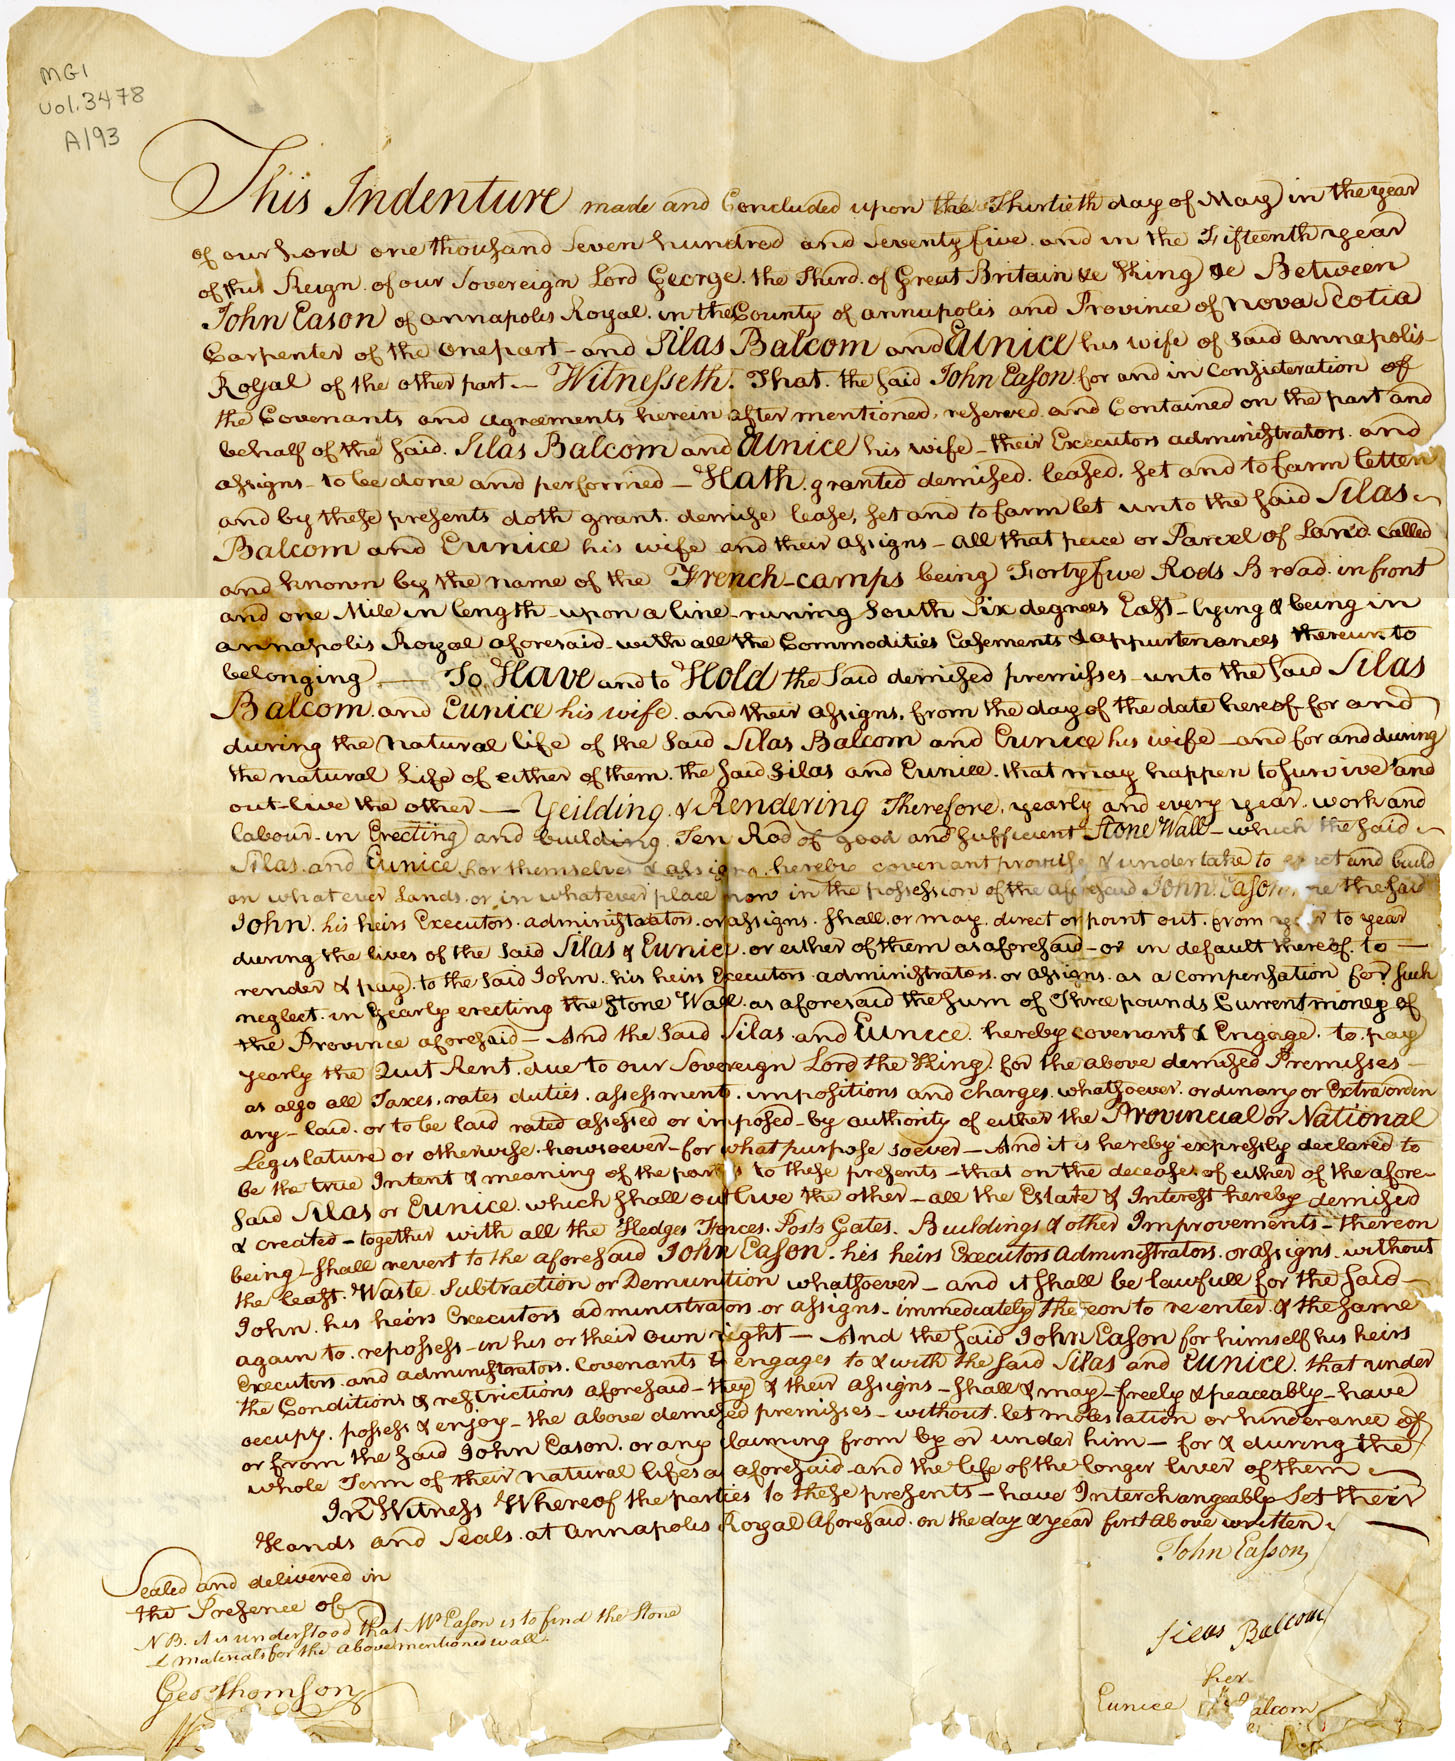 MG1
Vol. 3478
A193
This Indenture made and Concluded upon the Thirtieth day of May in the year
of our Lord one thousand Seven hundred and Seventy five and in the Fifteenth year
of the Reign of our Sovereign Lord George the Third of Great Britain &c King &c Between
John Eason of annapolis Royal in the County of annapolis and Province of Nova Scotia
Carpenter of the one part - and Silas Balcom and Eunice his wife of Said annapolis-
Royal of the other part - Witnesseth That the Said John Eason for and in Consideration of
the Covenants and agreements herein after mentioned, reserved and Contained on the part and
behalf of the Said Silas Balcom and Eunice his wife - their Executors administrators and
assigns - to be done and performed - Hath granted demised leased, set and to farm letten
and by these presents doth grant demise lease, set and to farm let unto the Said Silas
Balcom and Eunice his wife and their assigns - all that peice or Parcel of Land Called
and known by the name of the French-camps being Forty five Rods Broad in front
and one Mile in length upon a line runing South Six degrees East - lying & being in
annapolis Royal aforesaid with all the Commodities Easements & appurtenances thereunto
belonging - To Have and to Hold the Said demised premisses unto the Said Silas
Balcom and Eunice his wife and their assigns, from the day of the date hereof for and
during the natural life of the Said Silas Balcom and Eunice his wife - and for and during
the natural Life of either of them the Said Silas and Eunice that may happen to Survive and
out-live the other - Yeilding & Rendering Therefore yearly and every year work and
labour in Erecting and building Ten Rod of good and Sufficient Stone Wall - which the Said
Silas and Eunice for themselves & assigns hereby covenant promise & undertake to erect and build
on whatever Lands or in whatever place now in the possession of the aforesaid John Eason the Said
John his heirs Executors administrators or assigns shall or may direct or point out from year to year
during the lives of the Said Silas & Eunice or either of them as aforesaid - or in default thereof to -
render & pay to the Said John his heirs Executors administrators or assigns as a compensation for Such
neglect in yearly erecting the Stone Wall as aforesaid the Sum of Three pounds Current money of
the Province aforesaid - And the Said Silas and Eunice hereby covenant & Engage to pay
yearly the Quit Rent due to our Sovereign Lord the King for the above demised Premisses -
as also all Taxes, rates duties assessments impositions and charges whatsoever ordinary or Extraordin
ary - laid or to be laid rated assessed or imposed - by authority of either the Provincial or National
Legislature or otherwise howsoever - for what purpose soever - And it is hereby expressly declared to
be the true Intent & meaning of the parties to these presents - that on the decease of either of the afore-
Said Silas or Eunice which shall outlive the other - all the Estate & Interest hereby demised
& created - together with all the Hedges Fences Posts Gates Buildings & other Improvements - thereon
being - shall revert to the aforesaid John Eason his heirs Executors administrators or assigns without
the least Waste Subtraction or Demunition whatsoever - and it shall be lawfull for the Said -
John his heirs Executors administrators or assigns - immediately thereon to reenter & the same
again to repossess - in his or their own right - And the Said John Eason for himself his heirs
Executors and administrators Covenants & engages to & with the Said Silas and Eunice that under
the Conditions & restrictions aforesaid - they & their assigns - shall & may - freely & peaceably - have
occupy possess & enjoy - the above demised premisses - without let molestation or hinderance of
or from the Said John Eason or any claiming from by or under him - for & during the
whole Term of their natural lifes as aforesaid and the life of the longer liver of them
In Witness Whereof the parties to these presents - have Interchangeably Set their
Hands and Seals at annapolis Royal Aforesaid on the day & year first above written
John Easson
Sealed and delivered in
the Presence of
NB. it is understood that Mr Eason is to find the Stone
& materials for the above mentioned wall.
Silas Balcom
Geo Thomson
her
Eunice alcom